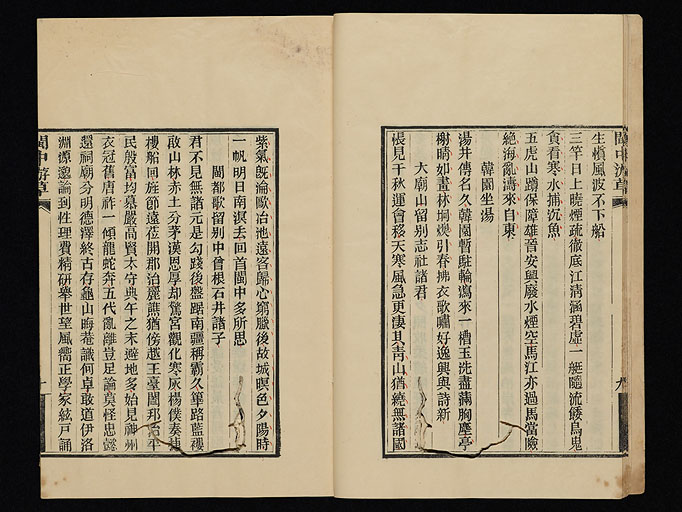 生積風波不下船
三竿日上曉煙疏徹底江淸涵碧虛一艇隨流餧鳥鬼
貪看寒水捕沉魚
五虎山蹲保障雄晉安興廢水煙空馬江亦過馬當險
絕海亂濤來自東
韓園坐湯
湯井傳名久韓園暫駐輪瀉來一槽玉洗盡滿胸塵亭
榭晴如畫林坰煗引春拂衣歌嘯好逸興與詩新
大廟山留別志社諸君
悵見千秋運會移天寒風急更淒其靑山猶繞無諸國
九
閩中游草
紫氣旣淪歐冶池遠客歸心窮臘後故城暝色夕陽時
一帆明日南溟去回首閩中多所思
閩都歌留別中曾根石井諸子
君不見無諸元是勾踐後盤踞南疆稱霸久篳路藍褸
啟山林赤土分茅漢恩厚却驚宮觀化寒灰楊僕奏捷
樓船回旌節遠莅開郡治麗譙猶傍越王臺閩邦治平
民殷富均慕嚴高賢太守典午之末避地多始見神州
衣冠舊唐祚一傾龍蛇奔五代亂離豈足論莫怪忠懿
還祠廟分明德澤終古存龜山晦菴識何卓敢道伊洛
淵源邈論到性理費精研舉世望風嚮正學家絃戶誦
閩中游草
十